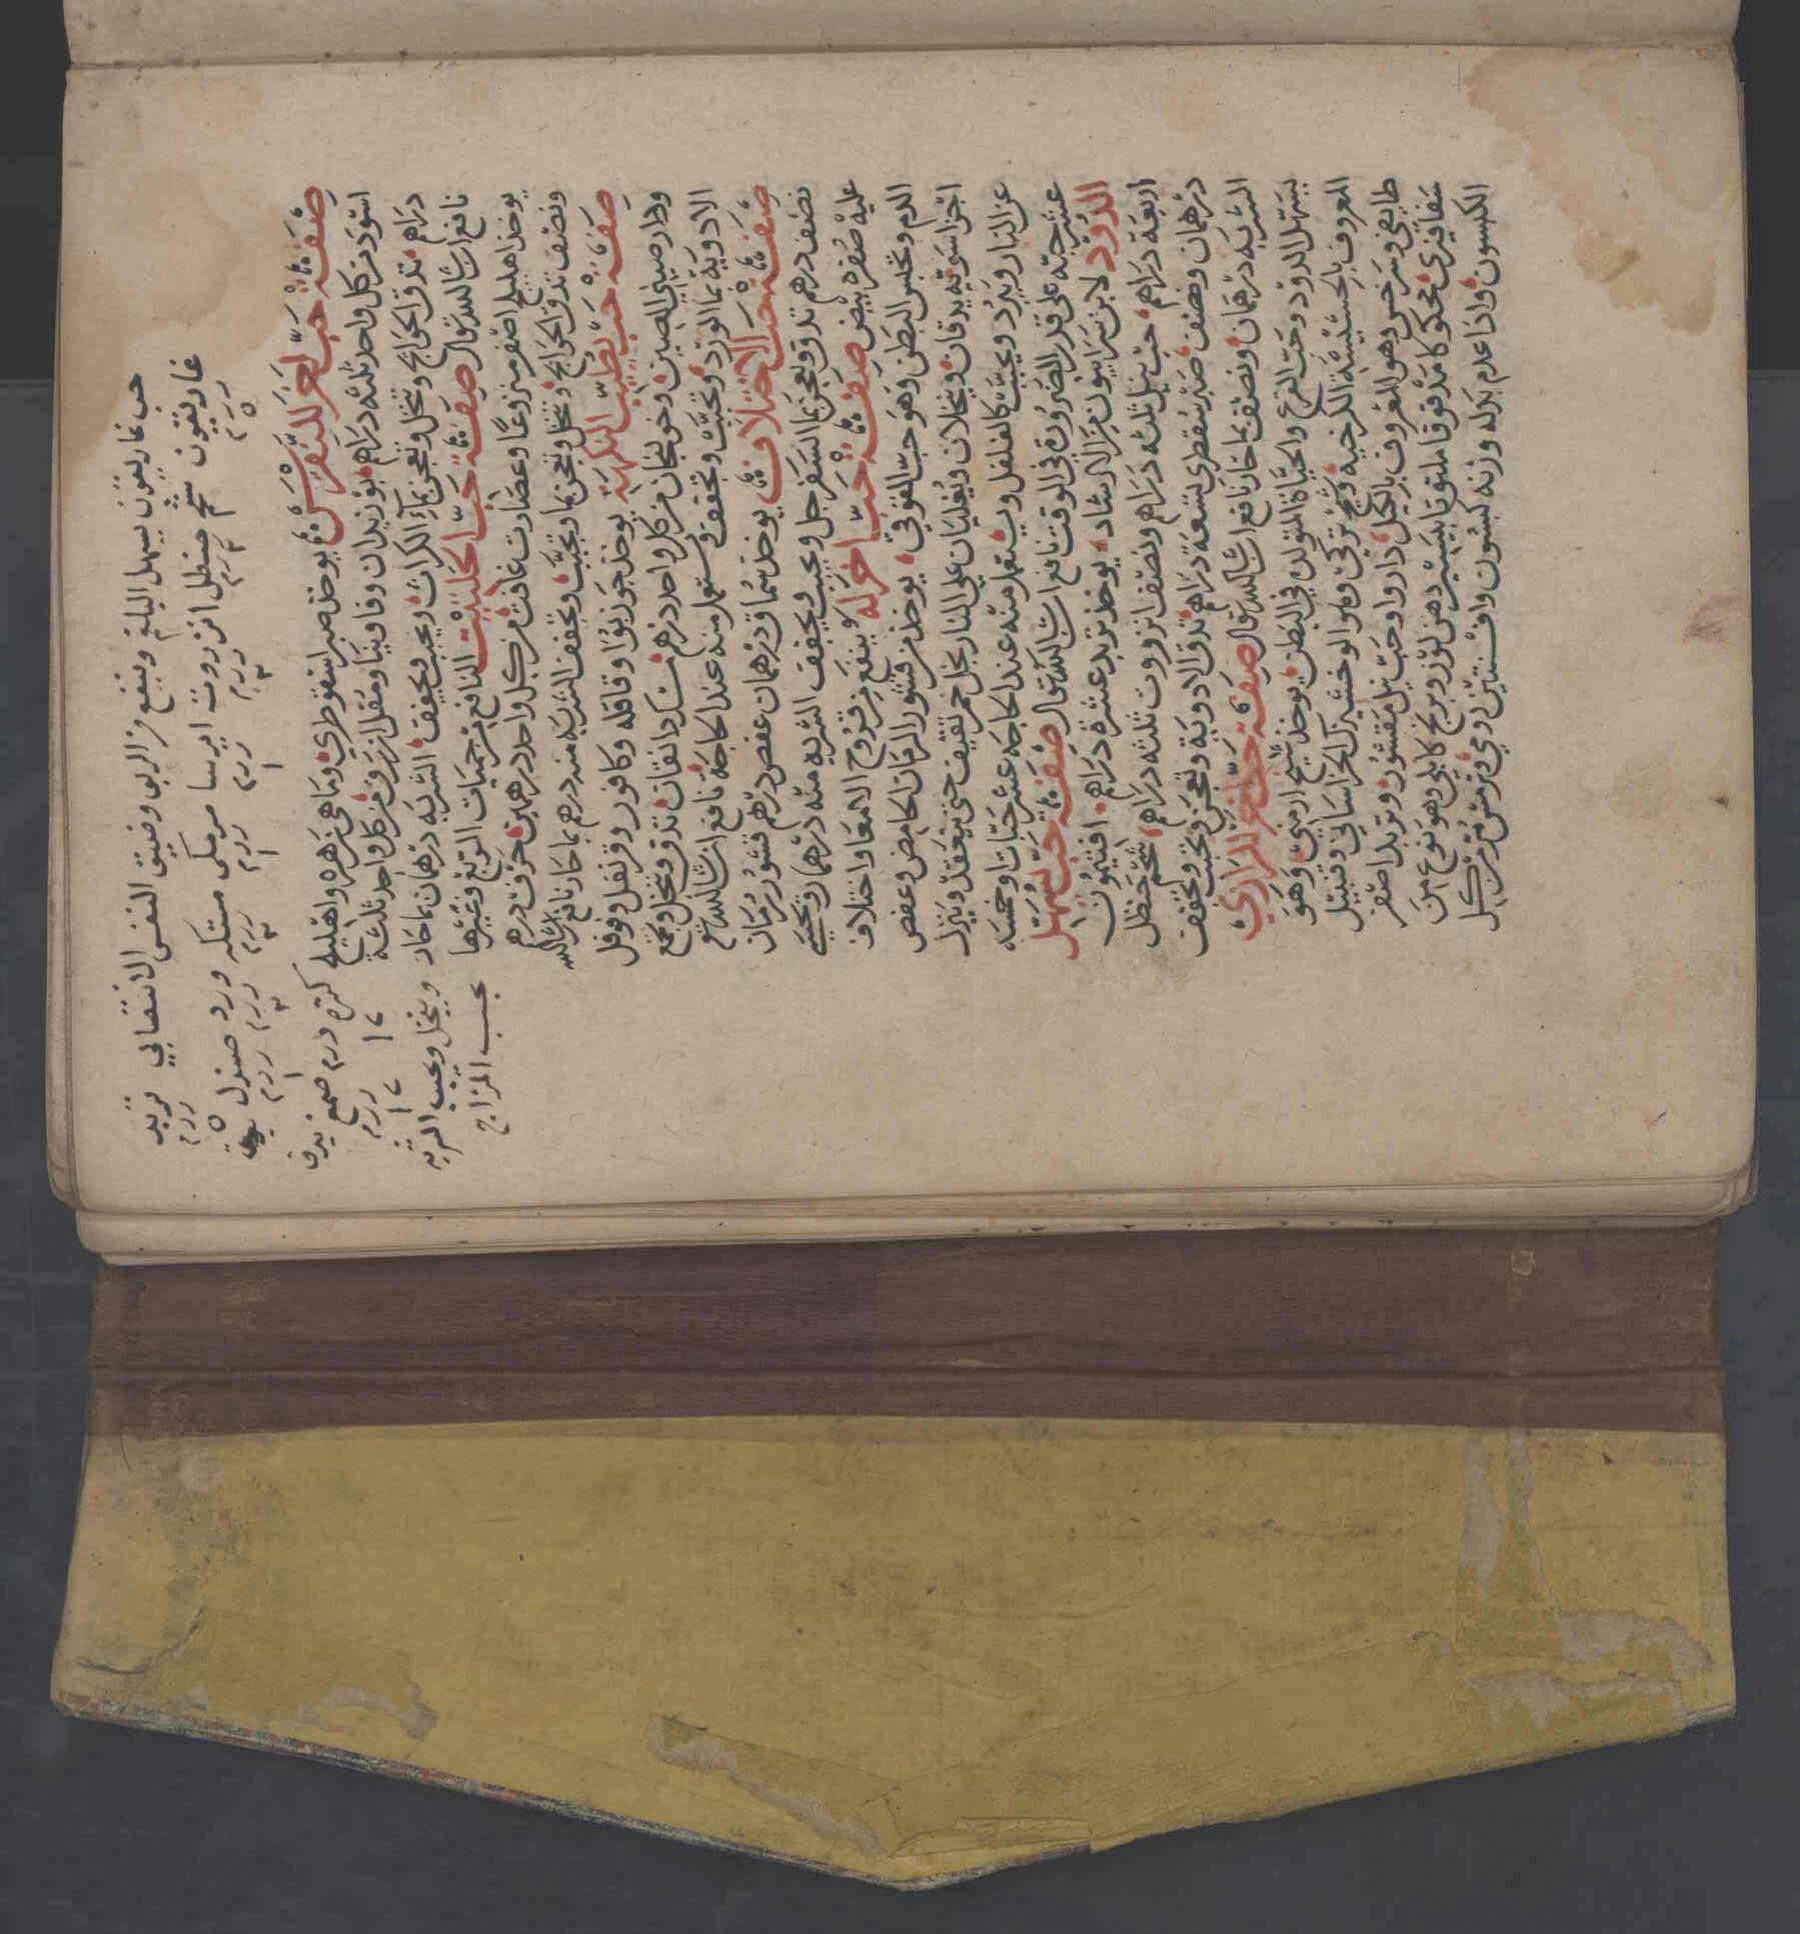 حب غاريقون يسهل البلغم وينفع من الربو وضيق النفس الانتصابي تربد
غاريقون شحم حنظل انزروت ايرسا مر مكي مستكه ورد صندل
كثيره درم صمغ يدق
وينخل ويحبب الشربه
بحسب المزاج
صفة حب اخر للنقرس يوخذ صبر اسقوطري وماهي زهره واهليلج
اسود من كل واحد ثلثه دراهم بوزيدان وفاوينا ومقل ازرق من كل واحد ثلثة
دراهم تدق الحوايج وتنخل وتعجن بمآء الكراث ويحبب ويجفف الشربه درهمان بما حار
نافع ان شا الله تعالى صفة حب الحلتيت النافع من حميات الربع وغيرها
يوخذ اهليلج اصفر منزوعا وعصارت غافت من كل واحد درهمين حرف درهم
ونصف تدق الحوايج وتنخل وتعجن بما وتحبب وتجفف الشربه منه درهم بما حار نافع ان شا الله
صفة حب يطيب النكهة يوخذ جوزبوا وقاقله وكافور وقرنفل وفوفل
ودار صيني الصين وخولنجان من كل واحد درهم مسك دانقان تدق وتنخل وتجمع
الادوية بما الورد وتحبب وتجفف ويستعمل منه عند الحاجة نافع ان شا الله تع
صفة حب الاختلاف يوخذ سماق درهمان عفص درهم قشور رمان
نصف درهم تدق وتعجن بما السفرجل ويحبب ويجفف الشربه منه درهمان وتحسى
عليه صفرة بيض صفة حب اخر له ينفع من قروح الامعا واختلاف
الدم ويحبس البطن وهو حب القوقي يوخذ من قشور الرمان الحامض وعفص
اجزا سوية يدقان وينخلان ويغليان علي النار بخل خمر ثقيف حتي ينعقد وينزل
عن النار ويبرد ويحبب كالفلفل ويستعمل منه عند الحاجه عشر حبات او خمسه
عشر حبه علي قدر الضرورة في الوقت نافع ان شا الله تعال صفة حب يسهل
الدود لابن سرابيون من الارشاد يوخذ تربد عشرة دراهم افثيمون
اربعة دراهم حب نيل ثلثه دراهم ونصف انزروت ثلثه دراهم شحم حنظل
درهمان ونصف صبر سقطري تسعة دراهم تدق الادوية وتعجن وتحبب وتجفف
الشربه درهمان ونصف بما حار نافع ان شا الله تعال صفة حب اخر للرازي
يسهل الدود وحب القرع والحيات المتولدة في البطن يوخذ شيح ارمني وهو
المعروف بالحشيشة الخرخيه وشيح تركي وهو الوخشيرك الخراساني وقنبيل
طايفي وسرخس وهو المعروف بالكيلدارو وحب نيل مقشور وتربد اصفر
سفايزي محكوكا مدقوقا ملتوتا بيسير دهن لوز وبرنج كابلي وهو نوع من
الكسون واذا عدم بدله وزنه كسون وافسنتين رومي وترمس مر من كل